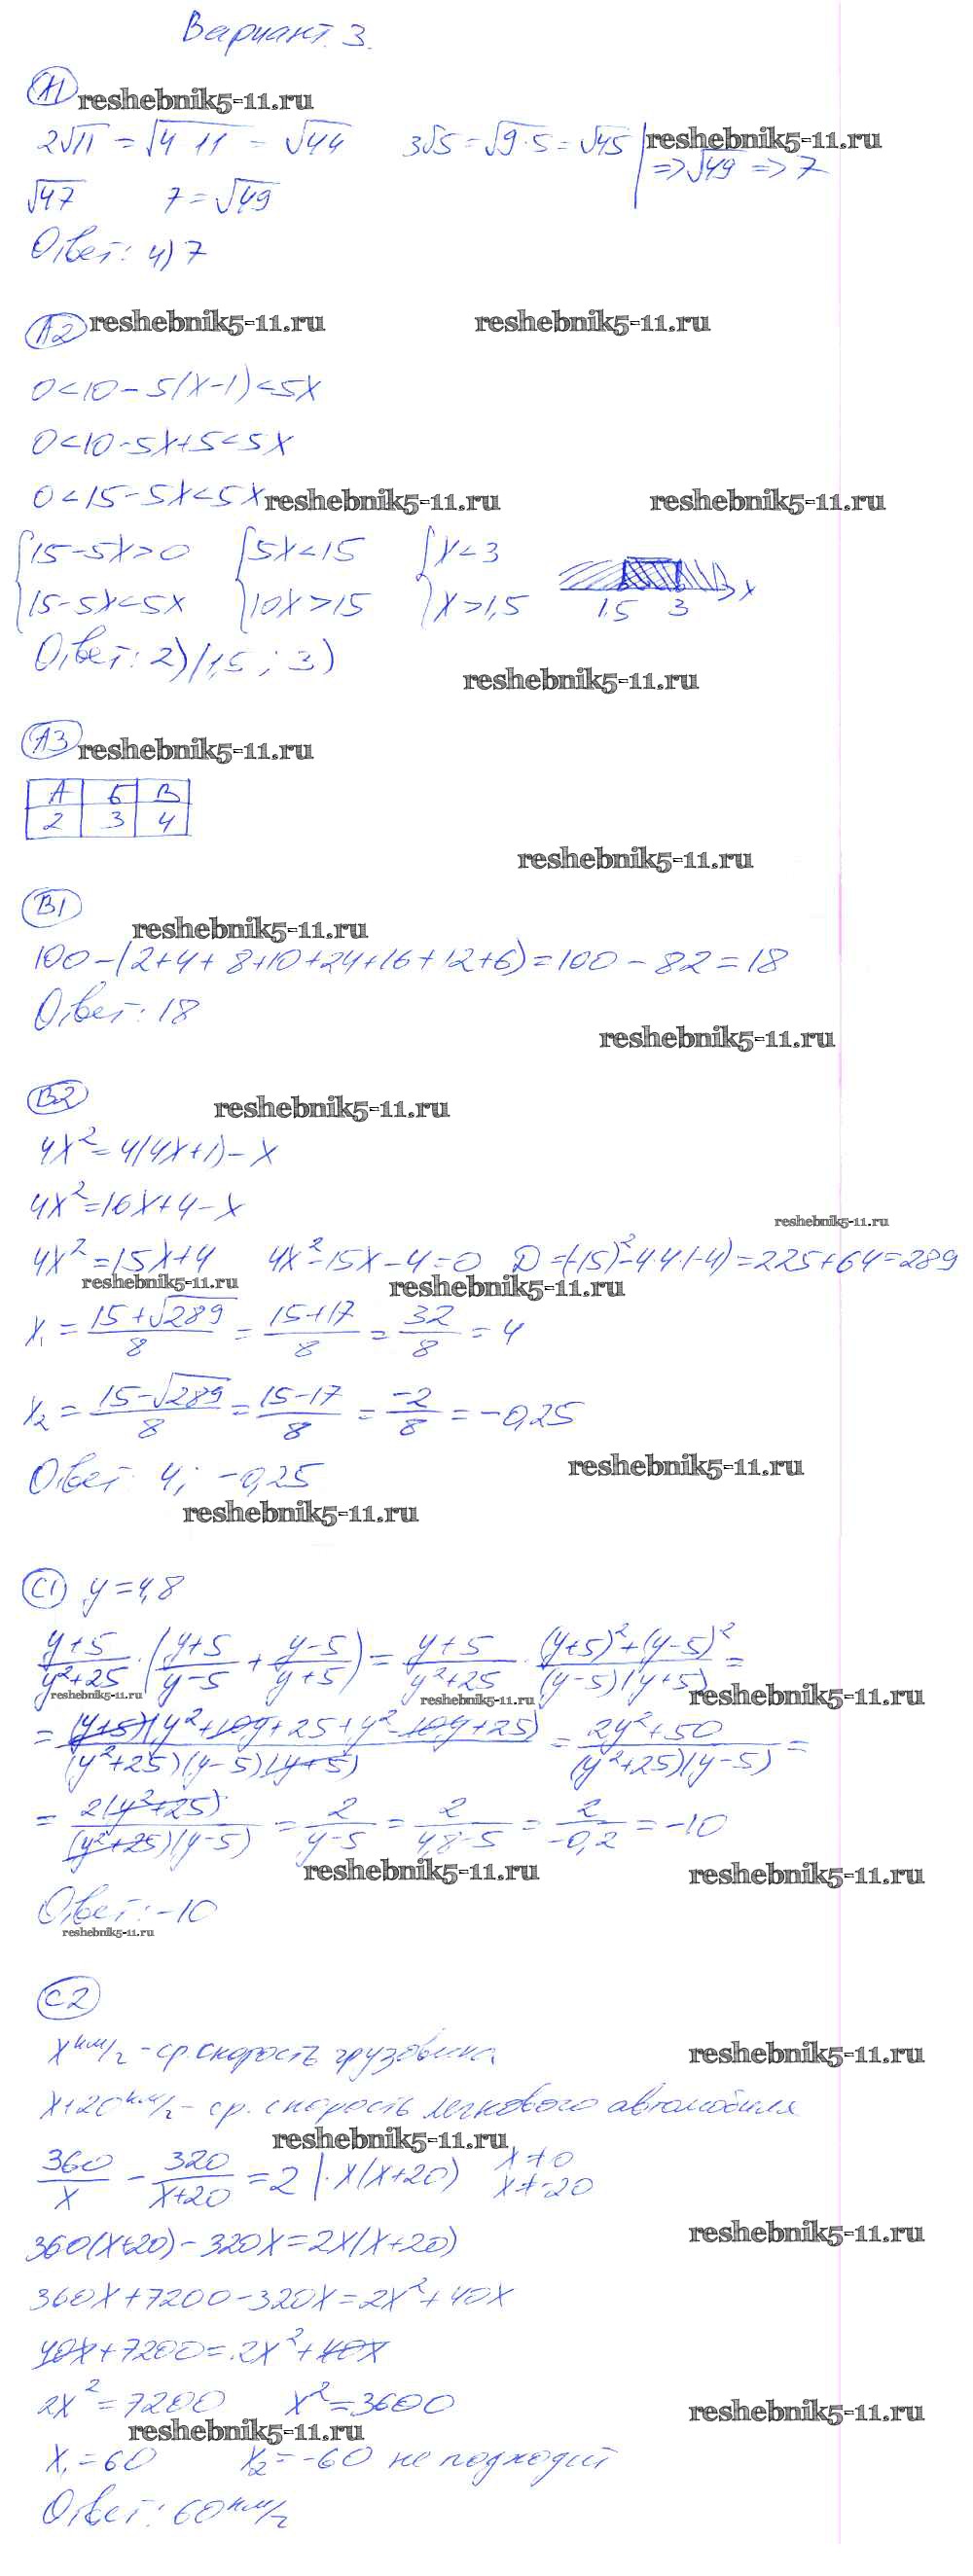 Вариант 3.
А1 reshebnik5-11.ru
2√11 = √4·11 = √44 3√5 = √9·5 = √45 reshebnik5-11.ru
√47 7 = √49 => √49 => 7
Ответ: 4) 7
А2 reshebnik5-11.ru reshebnik5-11.ru
0<10-5(x-1)<5x
0<10-5x+5<5x
0<15-5x<5x reshebnik5-11.ru reshebnik5-11.ru
{15-5x>0 {5x<15 {x<3
{15-5x<5x {10x>15 {x>1,5 1,5 3 x
Ответ: 2) (1,5; 3)
reshebnik5-11.ru
А3 reshebnik5-11.ru
А Б В
2 3 4
reshebnik5-11.ru
В1
reshebnik5-11.ru
100-(2+4+8+10+24+16+12+6)=100-82=18
Ответ: 18
reshebnik5-11.ru
В2 reshebnik5-11.ru
4x²=4(4x+1)-x
4x²=16x+4-x
reshebnik5-11.ru
4x²=15x+4 4x²-15x-4=0 D=(-15)²-4·4·(-4)=225+64=289
reshebnik5-11.ru reshebnik5-11.ru
x₁ = (15+√289)/8 = (15+17)/8 = 32/8 = 4
x₂ = (15-√289)/8 = (15-17)/8 = -2/8 = -0,25
Ответ: 4; -0,25 reshebnik5-11.ru
reshebnik5-11.ru
С1 y=4,8
(y+5)/(y²+25) · ((y+5)/(y-5) + (y-5)/(y+5)) = (y+5)/(y²+25) · ((y+5)²+(y-5)²)/((y-5)(y+5)) =
reshebnik5-11.ru reshebnik5-11.ru reshebnik5-11.ru
= ((y+5)(y²+10y+25+y²-10y+25))/((y²+25)(y-5)(y+5)) = (2y²+50)/((y²+25)(y-5)) =
= (2(y²+25))/((y²+25)(y-5)) = 2/(y-5) = 2/(4,8-5) = 2/(-0,2) = -10
reshebnik5-11.ru reshebnik5-11.ru
Ответ: -10
reshebnik5-11.ru
С2
x км/г - ср. скорость грузовика reshebnik5-11.ru
x+20 км/г - ср. скорость легкового автомобиля
reshebnik5-11.ru
360/x - 320/(x+20) = 2 |·x(x+20) x≠0
x≠-20
reshebnik5-11.ru
360(x+20)-320x=2x(x+20)
360x+7200-320x=2x²+40x
40x+7200=2x²+40x
2x²=7200 x²=3600 reshebnik5-11.ru
reshebnik5-11.ru
x₁=60 x₂=-60 не подходит
Ответ: 60 км/г